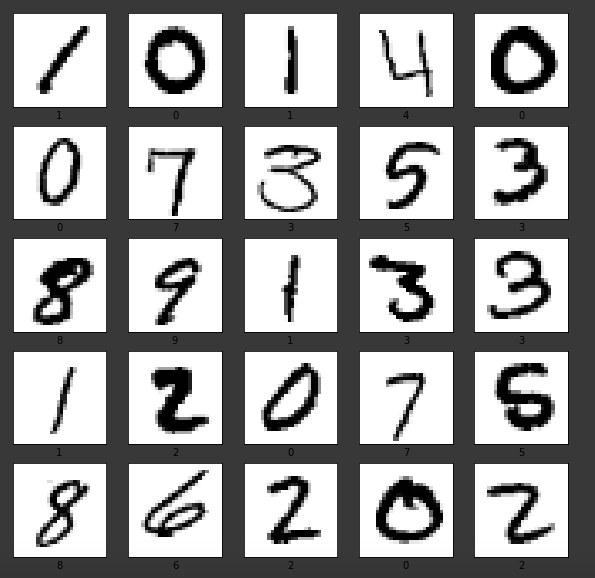 1 0 1 4 0
1 0 1 4 0
0 7 3 5 3
0 7 3 5 3
8 9 1 3 3
8 9 1 3 3
1 2 0 7 5
1 2 0 7 5
8 6 2 0 2
8 6 2 0 2